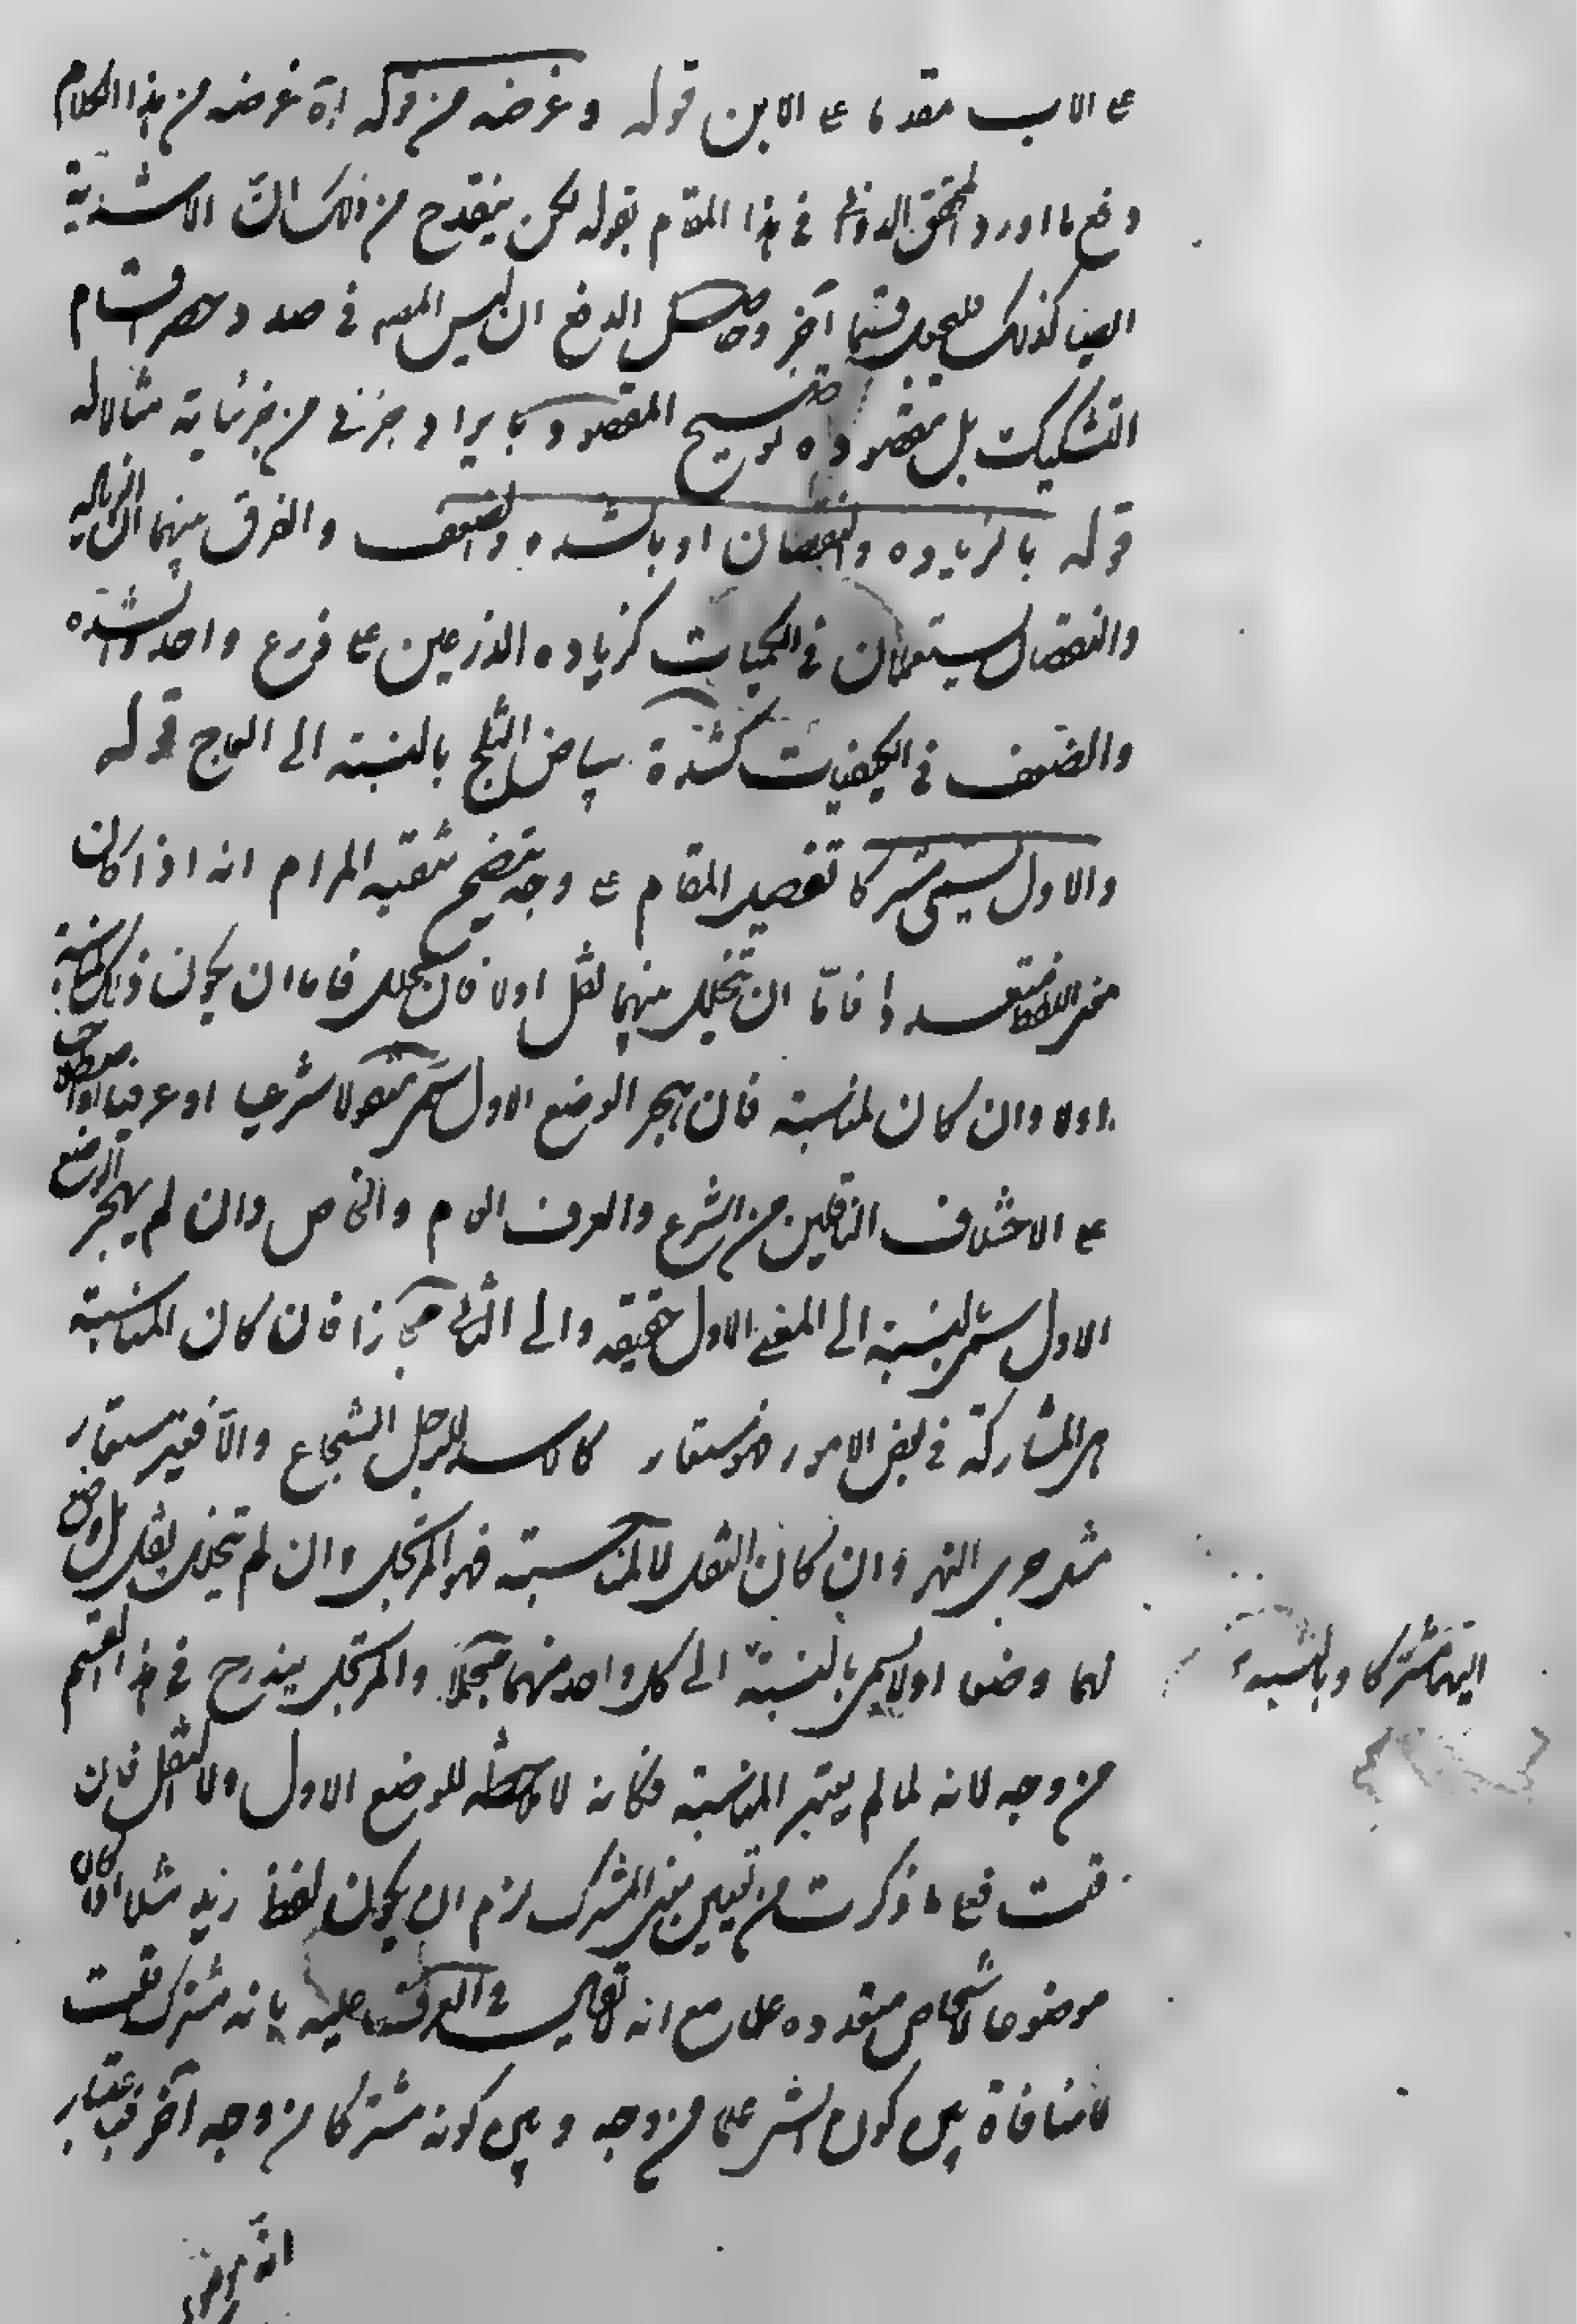 على الاب مقدما على الابن قوله وغرضه من قوله اه غرضه من هذا الكلام
دفع ما اورد المحقق الدواني في هذا المقام بقوله لكن ينقدح من ذلك ان الاشدية
ايضا كذلك فيجعل قسما آخر وحاصل الدفع ان ليس المصـ في صدد حصر اقسام
التشكيك بل مقصوده توضيح المقصود بايراد جزئي من جزئياته مثالا له
قوله بالزياده والنقصان او بالشده والضعف والفرق بينهما ان الزياده
والنقصان يستعملان في الكميات كزياده الذرعين على ذرع واحد والشده
والضعف في الكيفيات كشدة بياض الثلج بالنسبة الى العاج قوله
والاول يسمى مشتركا تفصيل المقام على وجه يتضح منه المرام انه اذا كان
معنى اللفظ متعددا فاما ان يتخلل بينهما نقل اولا فان تخلل فاما ان يكون ذلك لمناسبة
اولا وان كان لمناسبة فان هجر الوضع الاول سمى منقولا شرعيا او عرفيا او اصطلاحيا
على الاختلاف الناقلين من الشرع والعرف العام والخاص وان لم يهجر الوضع
الاول سمى بالنسبة الى المعنى الاول حقيقه والى الثاني مجازا فان كان المناسبة
هى المشاركة في بعض الامور فهو مستعار كالاسد للرجل الشجاع والا فغير مستعار
مثل جرى النهر وان كان النقل لا لمناسبة فهو المرتجل وان لم يتخلل نقل بل وضع
لهما وضعا اوليا يسمى بالنسبة الى كل واحد منهما مجملا والمرتجل يندرج في هذا القسم
اليهما مشتركا وبالنسبة
من وجه لانه لما لم يعتبر المناسبة فكانه لا ملاحظه للوضع الاول ولا لنقل فان
قلت فعلى ما ذكرت من تعيين معنى المشترك لزم ان يكون لفظ زيد مثلا اذا كان
موضوعا لاشخاص متعدده علما مع انه لا يطلق في العرف عليه بانه مشترك قلت
لا منافاة بين كون الشئ علما من وجه وبين كونه مشتركا من وجه آخر فباعتبار
انه موضوع